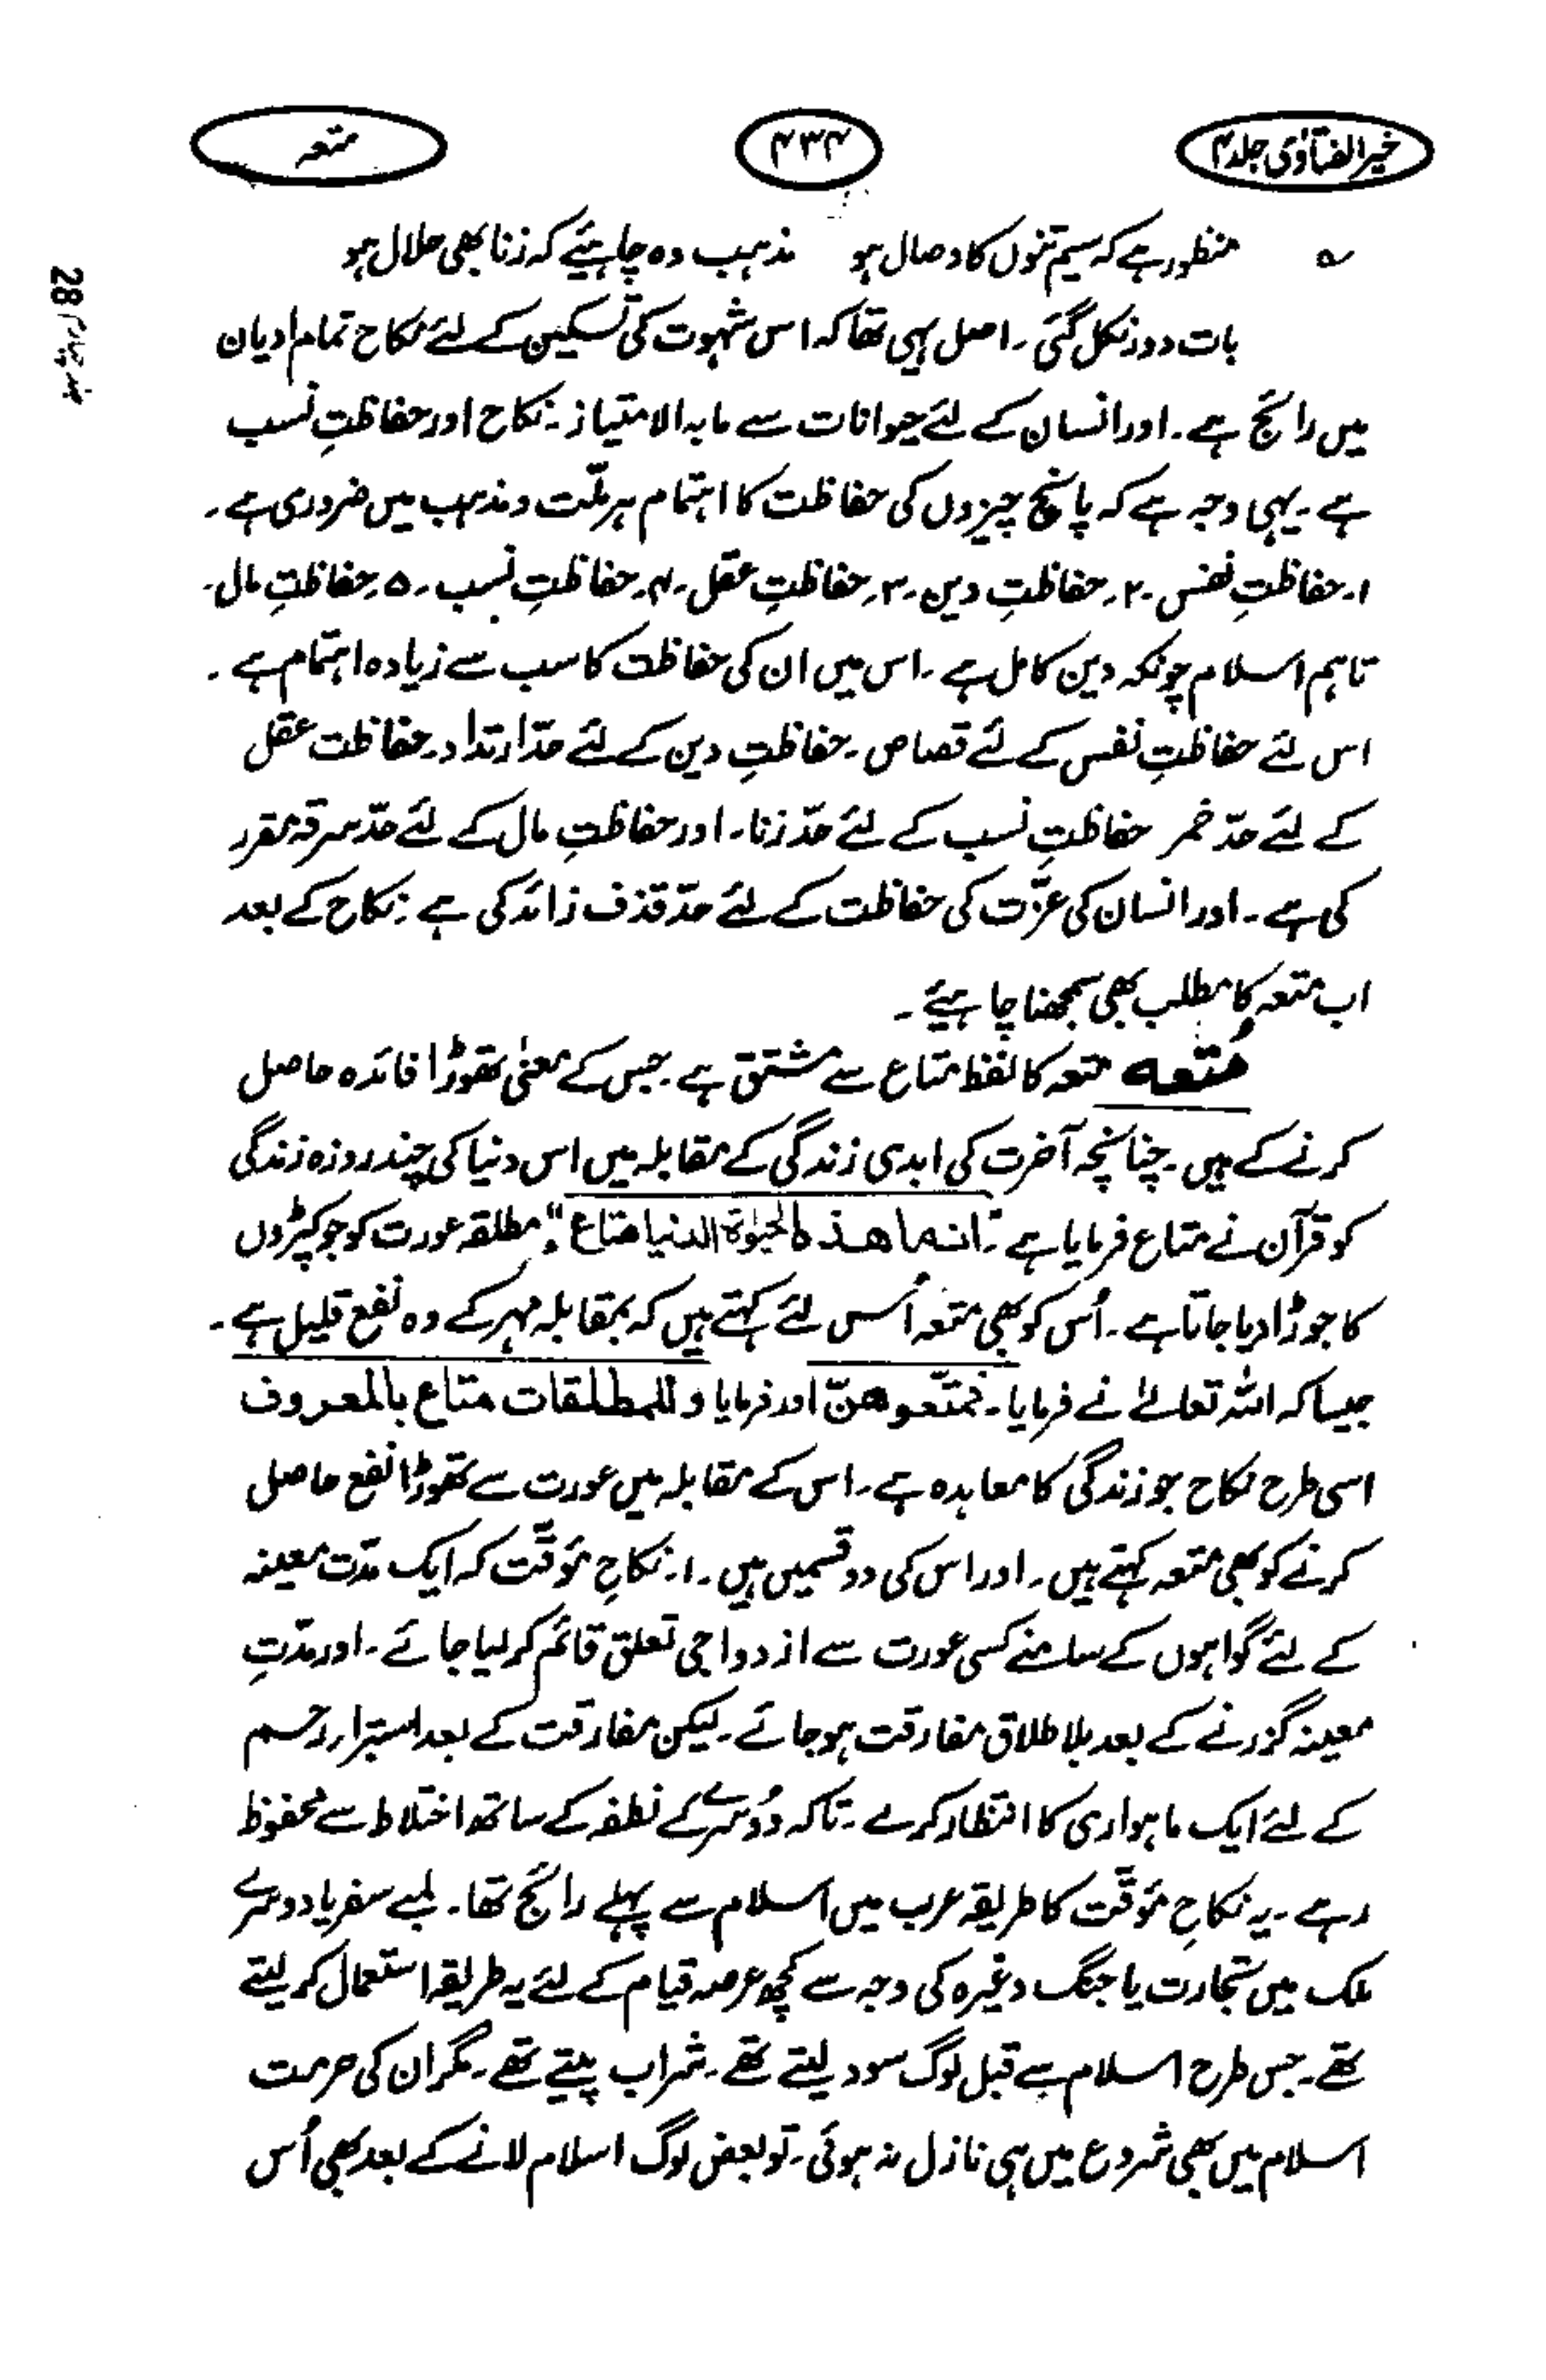 خیر الفتاوی جلد ۴
۴۳۴
متعہ
؎ منظور ہے کہ سیم تنوں کا وصال ہو مذہب وہ چاہیئے کہ زنا بھی حلال ہو
بات دور نکل گئی ۔ اصل یہی تھا کہ اس شہوت کی تسکین کے لئے نکاح تمام ادیان
میں رائج ہے ۔ اور انسان کے لئے حیوانات سے مابہ الامتیاز ۔ نکاح اور حفاظتِ نسب
ہے ۔ یہی وجہ ہے کہ پانچ چیزوں کی حفاظت کا اہتمام ہر ملّت و مذہب میں ضروری ہے ۔
۱۔ حفاظتِ نفس ۔ ۲۔ حفاظتِ دین ۔ ۳۔ حفاظتِ عقل ۔ ۴۔ حفاظتِ نسب ۔ ۵۔ حفاظتِ مال ۔
تاہم اسلام چونکہ دین کامل ہے ۔ اس میں ان کی حفاظت کا سب سے زیادہ اہتمام ہے ۔
اس لئے حفاظتِ نفس کے لئے قصاص ۔ حفاظتِ دین کے لئے حدّ ارتداد ۔ حفاظت عقل
کے لئے حدّ خمر حفاظتِ نسب کے لئے حدّ زنا ۔ اور حفاظتِ مال کے لئے حدّ سرقہ مقرر
کی ہے ۔ اور انسان کی عزّت کی حفاظت کے لئے حدّ قذف زائد کی ہے ۔ نکاح کے بعد
اب متعہ کا مطلب بھی سمجھنا چاہیئے ۔
مُتعہ متعہ کا لفظ متاع سے مشتق ہے ۔ جس کے معنیٰ تھوڑا فائدہ حاصل
کرنے کے ہیں ۔ چنانچہ آخرت کی ابدی زندگی کے مقابلہ میں اس دنیا کی چند روزہ زندگی
کو قرآن نے متاع فرمایا ہے "انما ھذہ الحیٰوۃ الدنیا متاع"۔ مطلقہ عورت کو جو کپڑوں
کا جوڑا دیا جاتا ہے ۔ اُس کو بھی متعہ اُس لئے کہتے ہیں کہ بمقابلہ مہر کے وہ نفع قلیل ہے ۔
جیسا کہ اللہ تعالےٰ نے فرمایا ۔ فمتّعوھنّ اور فرمایا وللمطلقات متاع بالمعروف
اسی طرح نکاح جو زندگی کا معاہدہ ہے ۔ اس کے مقابلہ میں عورت سے تھوڑا نفع حاصل
کرنے کو بھی متعہ کہتے ہیں ۔ اور اس کی دو قسمیں ہیں ۔ ۱۔ نکاحِ مؤقّت کہ ایک مدّت معینہ
کے لئے گواہوں کے سامنے کسی عورت سے ازدواجی تعلق قائم کر لیا جائے ۔ اور مدّتِ
معینہ گزرنے کے بعد بلا طلاق مفارقت ہو جائے ۔ لیکن مفارقت کے بعد استبراء رحم
کے لئے ایک ماہواری کا انتظار کرے ۔ تاکہ دُوسرے کے نطفہ کے ساتھ اختلاط سے محفوظ
رہے ۔ یہ نکاحِ مؤقّت کا طریقہ عرب میں اسلام سے پہلے رائج تھا ۔ لمبے سفر یا دوسرے
ملک میں تجارت یا جنگ وغیرہ کی وجہ سے کچھ عرصہ قیام کے لئے یہ طریقہ استعمال کر لیتے
تھے ۔ جس طرح اسلام سے قبل لوگ سود لیتے تھے ۔ شراب پیتے تھے ۔ مگر ان کی حرمت
اسلام میں بھی شروع میں ہی نازل نہ ہوئی ۔ تو بعض لوگ اسلام لانے کے بعد بھی اُس
28